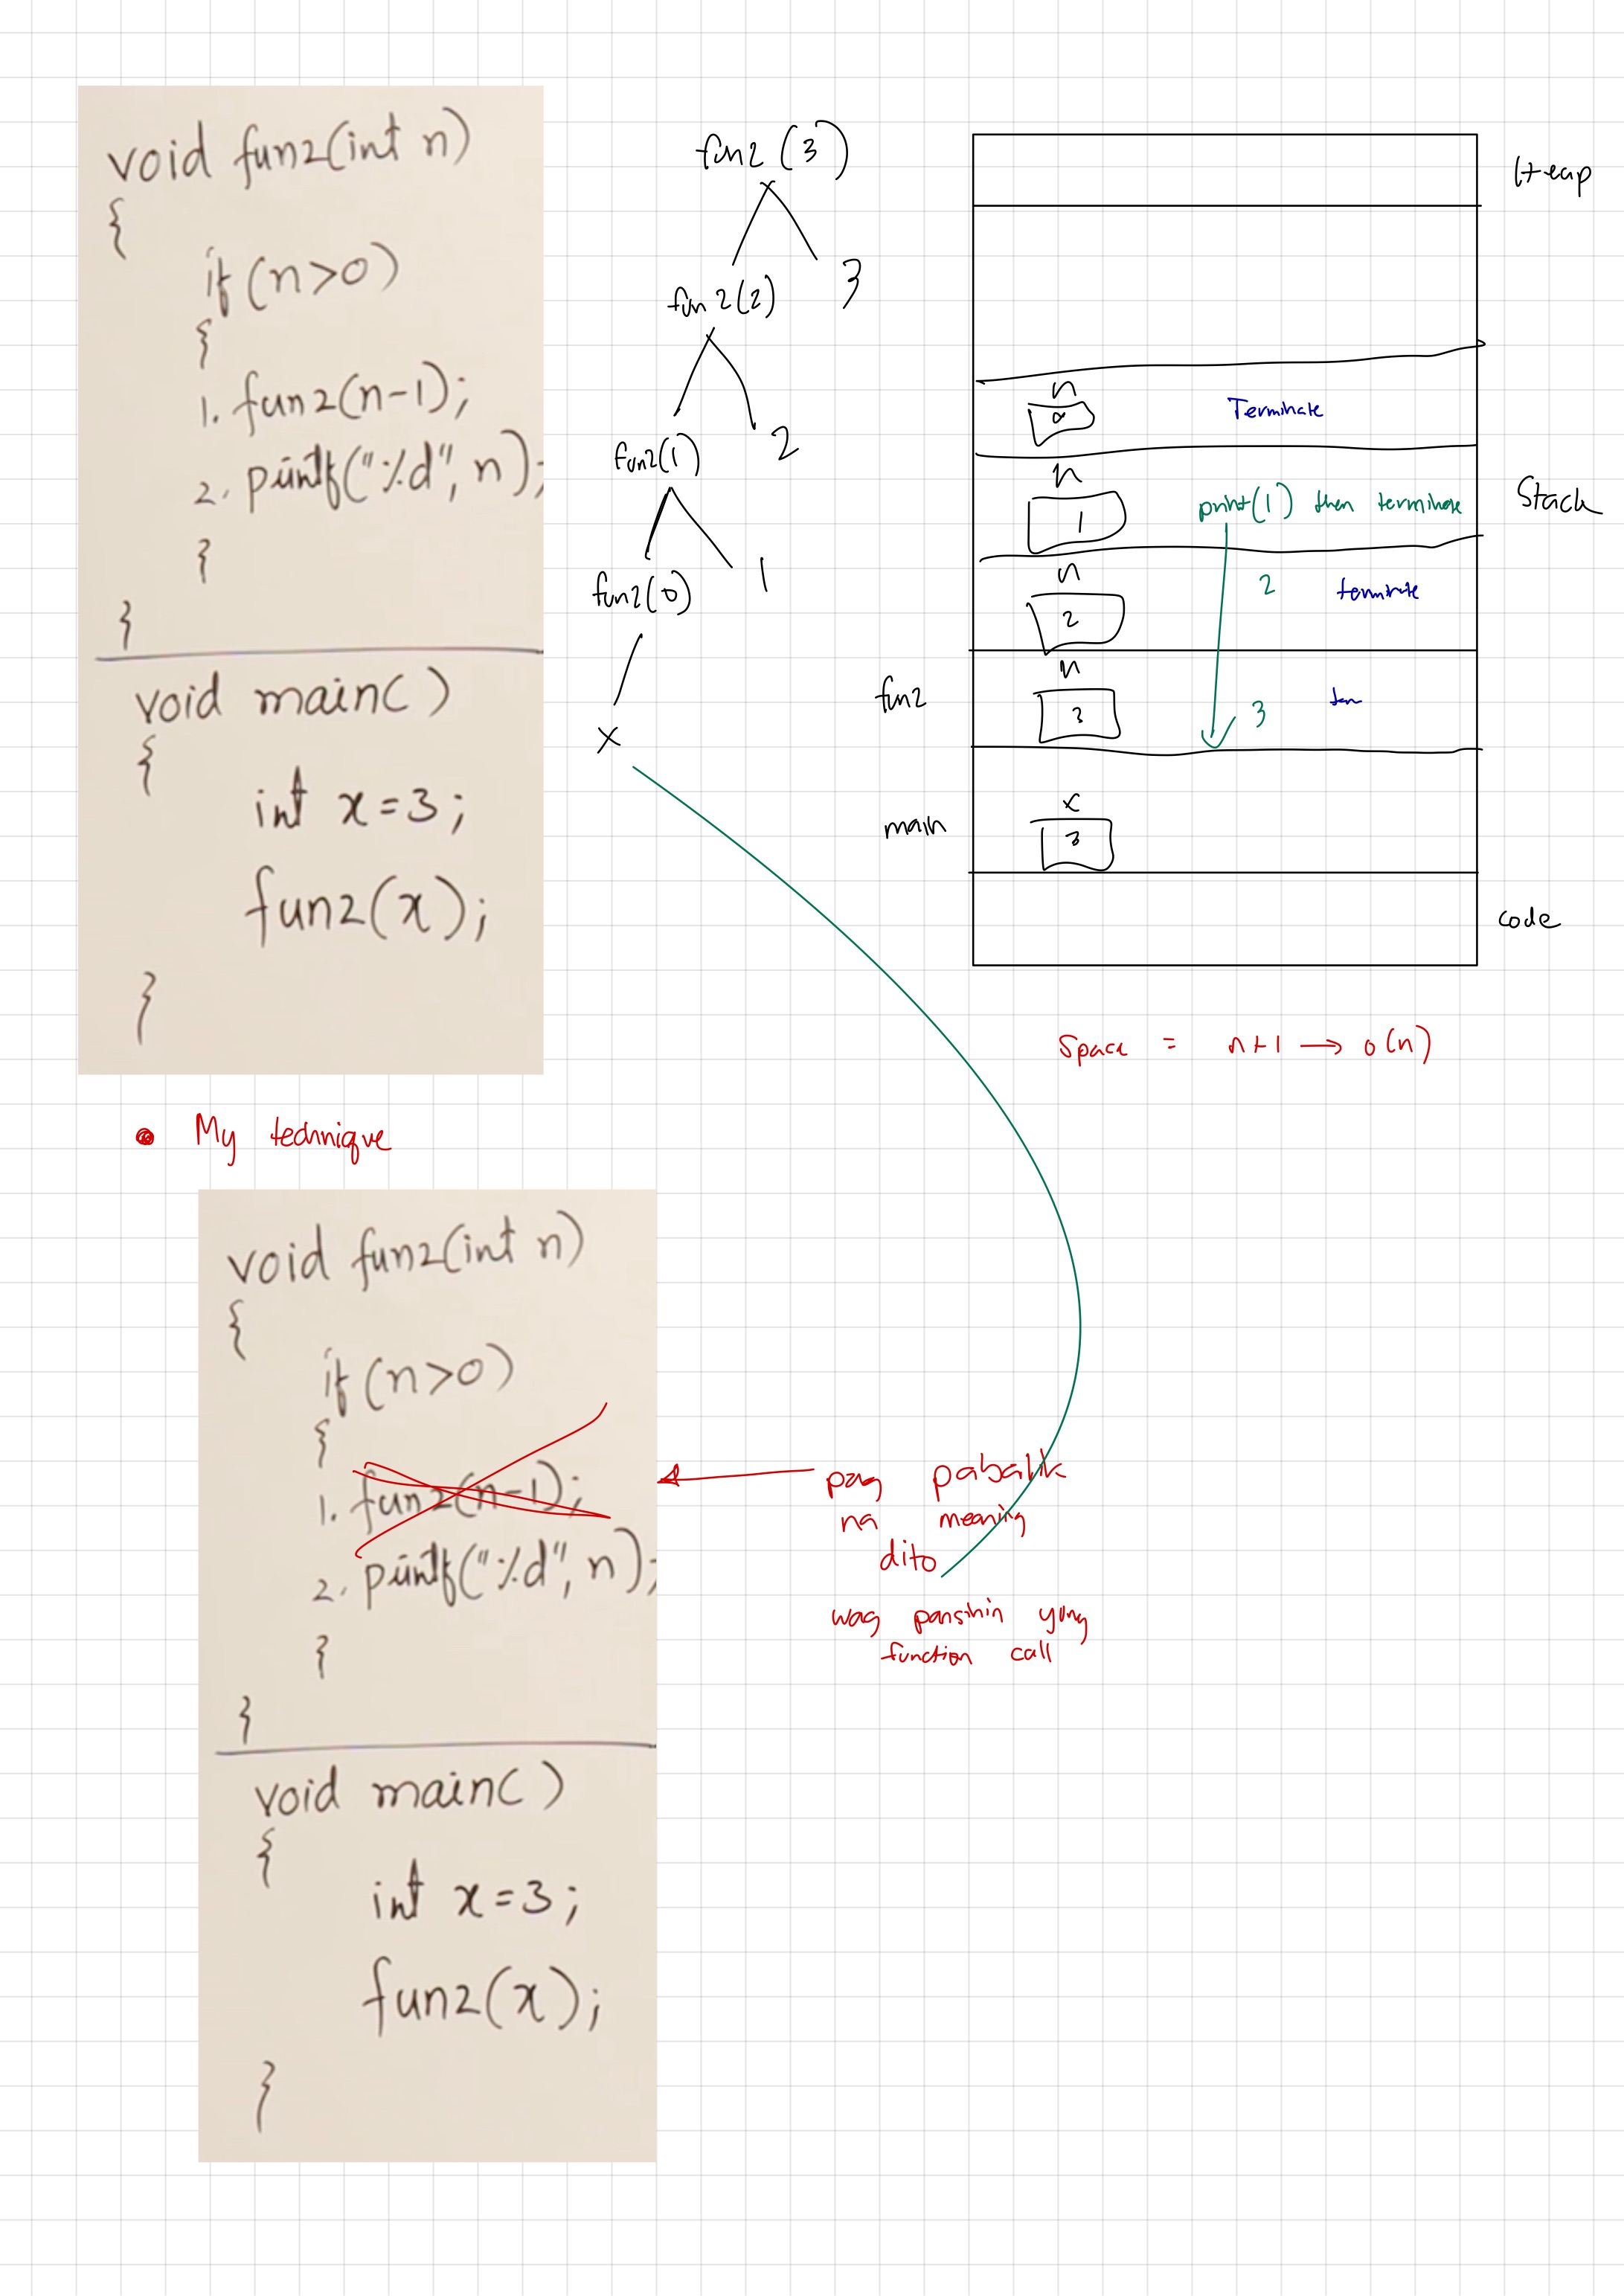 void fun2(int n)
{
if(n>0)
{
1. fun2(n-1);
2. printf("%d", n);
}
}
void main()
{
int x=3;
fun2(x);
}
fun2(3)
fun2(2) 3
fun2(1) 2
fun2(0) 1
x
Heap
n
0 Terminate
Stack
n
1 print(1) then terminate
n
2 2 terminate
fun2
n
3 3 ter
main
x
3
code
Space = n+1 → o(n)
• My technique
void fun2(int n)
{
if(n>0)
{
1. fun2(n-1);
2. printf("%d", n);
}
}
void main()
{
int x=3;
fun2(x);
}
pag pabalik
na meaning
dito
wag pansinin yung
function call